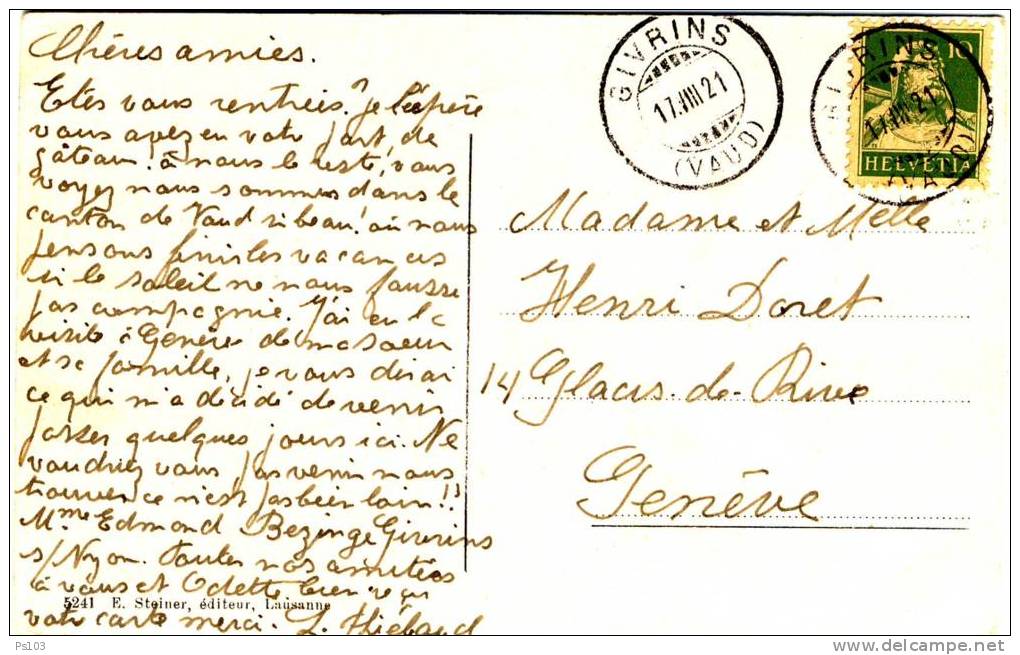 Chères amies.
Etes vous rentrées? Je l'espère
vous avez eu votre part, de
gâteau! à nous le reste, vous
voyez nous sommes dans le
canton de Vaud si beau! où nous
pensons finir les vacances
si le soleil ne nous fausse
pas compagnie. J'ai eu la
visite à Genève de ma soeur
et sa famille, je vous dirai
ce qui m'a décidé de venir
passer quelques jours ici. Ne
voudriez vous pas venir nous
trouver ce n'est pas bien loin!!
Mme Edmond Bezinge Givrins
s/Nyon. Toutes nos amitiés
à vous et Odette bien reçu
5241 E. Steiner, éditeur, Lausanne
votre carte merci. L. Thiébaud
GIVRINS
17.VIII.21
(VAUD)
10
HELVETIA
GIVRINS
17.VIII.21
(VAUD)
Madame et Melle
Henri Doret
14 Glacis-de-Rive
Genève
Ps103
www.delcampe.net